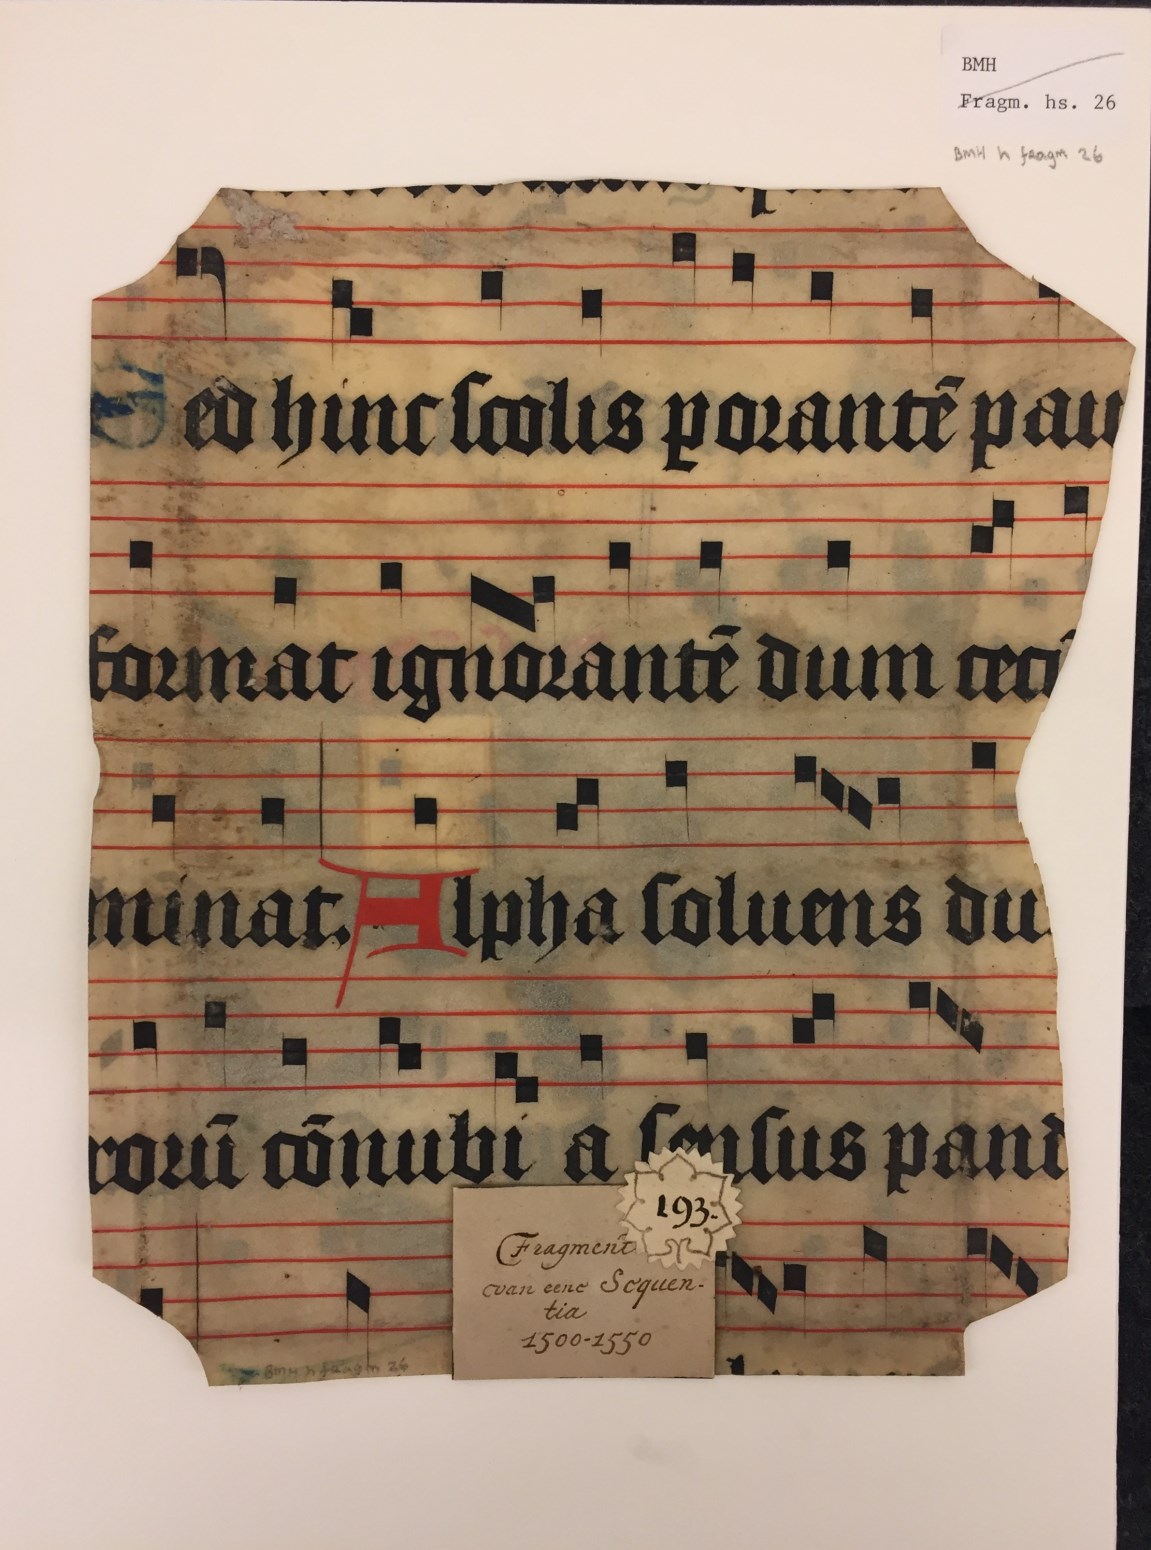 BMH
Fragm. hs. 26
BMH h fragm 26
ed hinc scolis porantē pau
format ignorantē dum ceci
minat. Alpha soluens du
rorū cōnubi a sensus pand
193.
Fragment
van eene Sequen-
tia
1500-1550
BMH h fragm 26